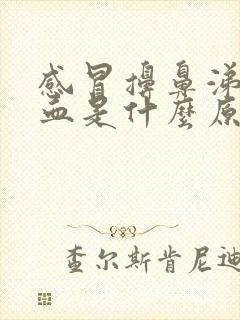 感冒擤鼻涕
血是什麼原
查尔斯肯尼迪